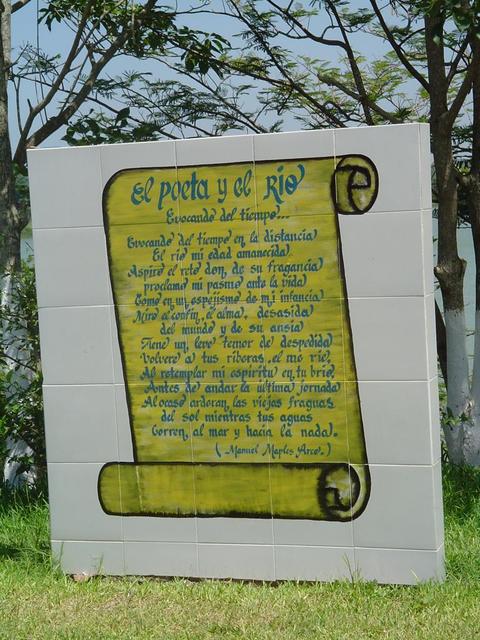 El poeta y el Rio
Evocando del tiempo...
Evocando del tiempo en la distancia
El rio mi edad amanecida
Aspiro el reto don, de su fragancia
proclame mi pasmo ante la vida
Como en un espejismo de mi infancia
Miro el confin, el alma, desasida
del mundo y de su ansia
Tiene un, leve temor de despedida
Volvere a tus riberas, el me rie,
Al retemplar mi espiritu en tu brio,
Antes de andar la ultima jornada
Al ocaso arderan, las viejas fraguas
del sol mientras tus aguas
Corren, al mar y hacia la nada.
(Manuel Maples Arce.)